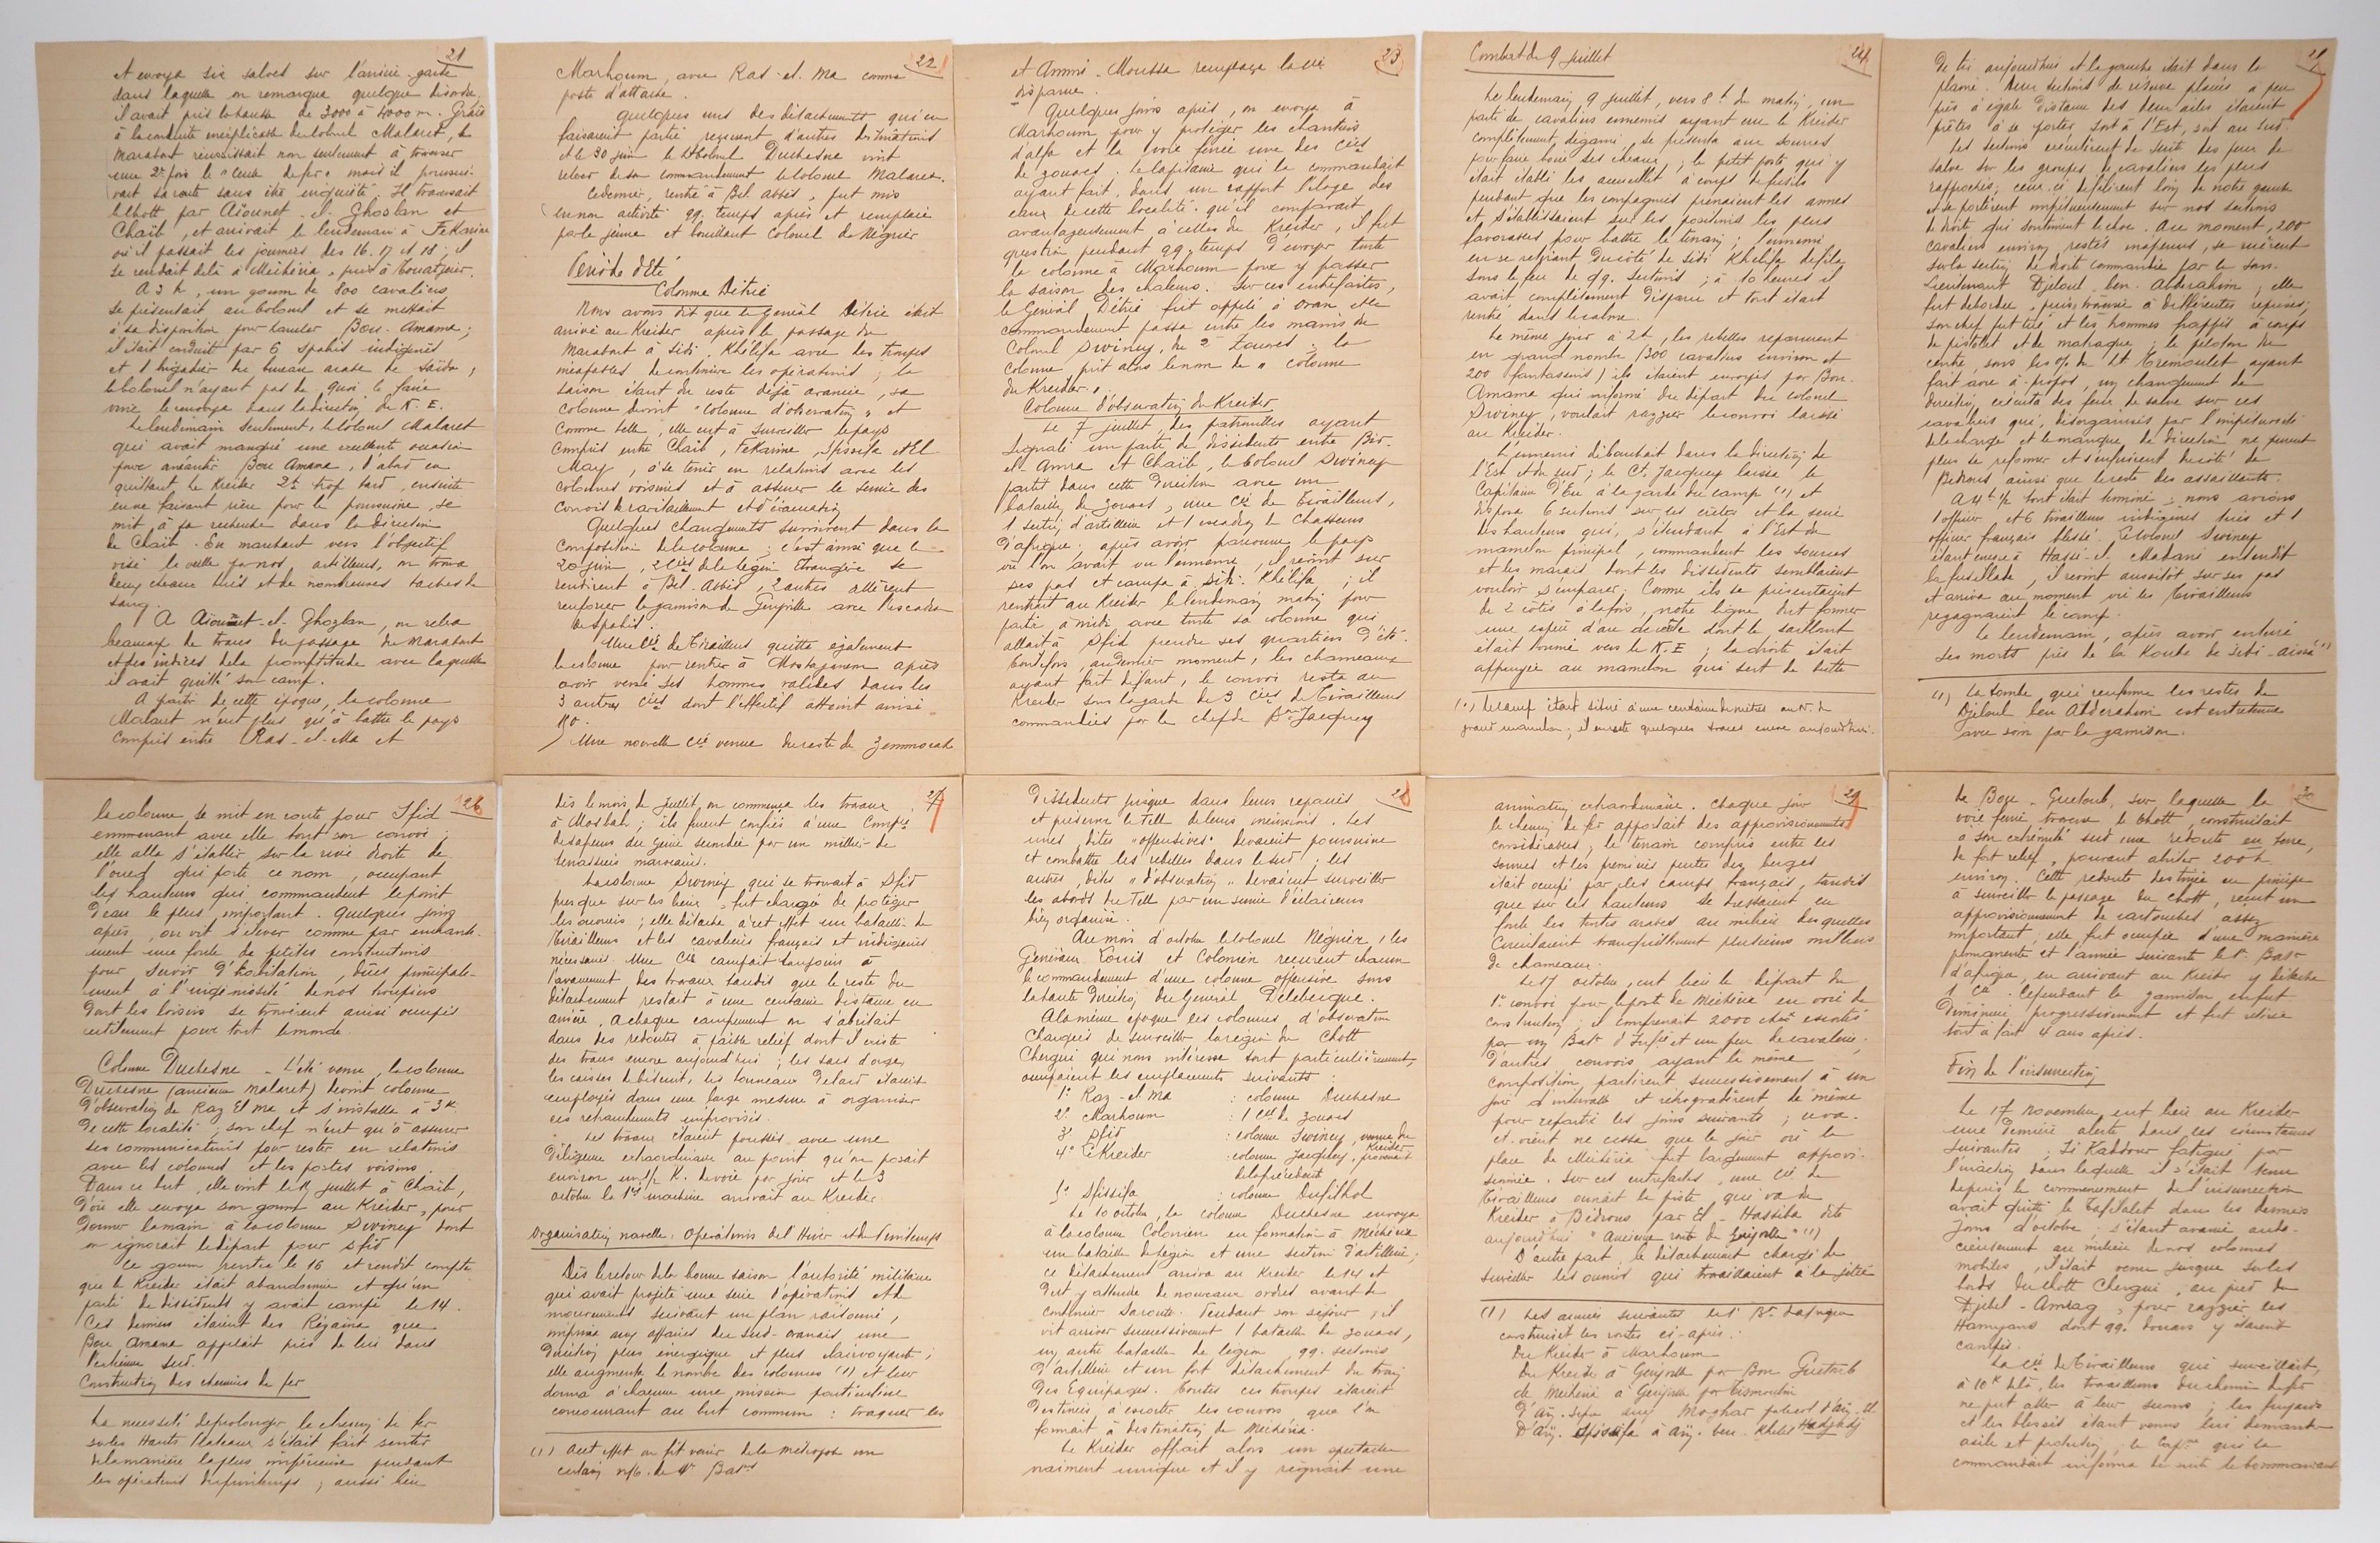 21
et envoya six salves sur l'arrière-garde
dans laquelle on remarqua quelque désordre.
il avait pris la hausse de 3000 à 4000 m. Grâce
à la conduite inexplicable du Colonel Malaret, le
Marabout réussissait non seulement à traverser
une 2e fois le "cercle de fer" mais il poursui-
vait sa route sans être inquiété. Il traversait
le chott par Aïounet-el-Ghozlan et
Chaïb, et arrivait le lendemain à Fekarine
où il passait les journées des 16. 17 et 18 ; il
se rendait de là à Méchéria, puis à Touadjeur.
A 3 h, un goum de 800 cavaliers
se présentait au Colonel et se mettait
à sa disposition pour harceler Bou-Amama ;
il était conduit par 6 spahis indigènes
et 1 brigadier du bureau arabe de Saïda ;
le Colonel n'ayant pas de quoi le faire
vivre le renvoya dans la direction du N. E.
Le lendemain seulement, le Colonel Malaret
qui avait manqué une excellente occasion
pour anéantir Bou Amama, d'abord en
quittant le Kreider 2h trop tard, ensuite
en ne faisant rien pour le poursuivre, se
mit à sa recherche dans la direction
de Chaïb. En marchant vers l'objectif
visé la veille par nos artilleurs, on trouva
deux chevaux tués et de nombreuses taches de
sang.
A Aïounet-el-Ghozlan, on releva
beaucoup de traces du passage du Marabout
et des indices de la promptitude avec laquelle
il avait quitté son camp.
A partir de cette époque, la colonne
Malaret n'eut plus qu'à battre le pays
compris entre Ras-el-Ma et
22
Marhoum, avec Ras-el-Ma comme
poste d'attache.
Quelques uns des détachements qui en
faisaient partie reçurent d'autres destinations
et le 30 juin le Lt Colonel Duchesne vint
relever de son commandement le Colonel Malaret.
Ce dernier, rentré à Bel-Abbès, fut mis
en non activité qq. temps après et remplacé
par le jeune et bouillant Colonel de Négrier
Période d'Eté
Colonne Détrie
Nous avons dit que le Général Détrie était
arrivé au Kreider après le passage du
Marabout à Sidi-Khélifa avec des troupes
incapables de continuer les opérations ; la
saison étant du reste déjà avancée, sa
colonne devint "colonne d'observation" et
comme telle, elle eut à surveiller le pays
compris entre Chaïb, Fekarine, Sfissifa et El
May, à se tenir en relations avec les
colonnes voisines et à assurer le service des
convois de ravitaillement et d'évacuation
Quelques changements survinrent dans la
composition de la colonne ; c'est ainsi que le
20 juin, 2 Cies de la légion Etrangère se
rendirent à Bel-Abbès, 2 autres allèrent
renforcer la garnison de Géryville avec l'escadron
de spahis.
Une Cie de Tirailleurs quitta également
la colonne pour rentrer à Mostaganem après
avoir versé ses hommes valides dans les
3 autres Cies dont l'effectif atteint ainsi
Une nouvelle Cie venue du reste de Zemmorah
23
et Ammi-Moussa remplaça la Cie
disparue.
Quelques jours après, on envoya à
Marhoum pour y protéger les chantiers
d'alfa et la voie ferrée une des Cies
de zouaves. Le Capitaine qui la commandait
ayant fait, dans un rapport l'éloge des
eaux de cette localité qu'il comparait
avantageusement à celles du Kreider, il fut
question pendant qq. temps d'envoyer toute
la colonne à Marhoum pour y passer
la saison des chaleurs. Sur ces entrefaites,
le Général Détrie fut appelé à Oran et le
commandement passa entre les mains du
Colonel Swiney, du 2e Zouaves ; la
colonne prit alors le nom de "colonne
du Kreider".
Colonne d'observation du Kreider
Le 7 juillet, des patrouilles ayant
signalé un parti de dissidents entre Bir-
el-Amra et Chaïb, le Colonel Swiney
partit dans cette direction avec un
bataillon de zouaves, une Cie de Tirailleurs,
1 section d'artillerie et 1 escadron de Chasseurs
d'Afrique. après avoir parcouru le pays
où l'on avait vu l'ennemi, il revint sur
ses pas et campa à Sidi-Khélifa ; il
rentrait au Kreider le lendemain matin pour
partir à midi avec toute sa colonne qui
allait à Sfid prendre ses quartiers d'été.
Toutefois, au dernier moment, les chameaux
ayant fait défaut, le convoi resta au
Kreider sous la garde de 3 Cies de Tirailleurs
commandées par le chef de Bon Jacquey
24
Combat du 9 juillet
Le lendemain, 9 juillet, vers 8h du matin, un
parti de cavaliers ennemis ayant cru le Kreider
complètement dégarni, se présenta aux sources
pour faire boire ses chevaux ; le petit poste qui y
était établi les accueillit à coups de fusils
pendant que les compagnies prenaient les armes
et s'établissaient sur les positions les plus
favorables pour battre le terrain ; l'ennemi
en se retirant du côté de Sidi Khelifa défila
sous le feu de qq. sections ; à 10 heures il
avait complètement disparu et tout était
rentré dans le calme.
Le même jour à 2h, les rebelles reparurent
en grand nombre (300 cavaliers environ et
200 fantassins) ils étaient envoyés par Bou-
Amama qui informé du départ du colonel
Swiney, voulait razzier le convoi laissé
au Kreider.
L'ennemi débouchait dans la direction de
l'Est et du sud ; le Ct. Jacquey laissa le
Capitaine D'Eu à la garde du camp (1) et
disposa 6 sections sur les crêtes et la série
des hauteurs qui, s'étendant à l'Est du
mamelon principal, commandent les sources
et les marais dont les dissidents semblaient
vouloir s'emparer. Comme ils se présentaient
de 2 côtés à la fois, notre ligne dut former
une espèce d'arc de cercle dont le saillant
était tourné vers le N.E ; la droite était
appuyée au mamelon qui sert de butte
(1) Le camp était situé à une centaine de mètres au N. du
grand mamelon ; il en reste quelques traces encore aujourd'hui.
25
de tir aujourd'hui et la gauche était dans la
plaine. Deux sections de réserve placées à peu
près à égale distance des deux ailes étaient
prêtes à se porter, soit à l'Est, soit au sud.
Les sections exécutèrent de suite des feux de
salve sur les groupes de cavaliers les plus
rapprochés ; ceux-ci défilèrent loin de notre gauche
et se portèrent impétueusement sur nos sections
de droite qui soutinrent le choc. Au moment, 200
cavaliers environ restés inaperçus, se ruèrent
sur la section de droite commandée par le sous-
lieutenant Djeloul-ben-Abderahim ; elle
fut débordée, puis traversée à différentes reprises ;
son chef fut tué et les hommes frappés à coups
de pistolet et de matraque ; le peloton du
centre, sous les o/. du Lt Tremoulet ayant
fait avec à-propos, un changement de
direction exécuta des feux de salve sur ces
cavaliers qui, désorganisés par l'impétuosité
de la charge et le manque de direction ne purent
plus se reformer et s'enfuirent du côté de
Bédrous ainsi que le reste des assaillants.
A 4h 1/2 tout était terminé ; nous avions
1 officier et 6 tirailleurs indigènes tués et 1
officier français blessé. Le Colonel Swiney
étant encore à Hassi-el-Madani entendit
la fusillade, il revint aussitôt sur ses pas
et arriva au moment où les Tirailleurs
regagnaient le camp.
Le lendemain, après avoir enterré
ses morts près de la Kouba de Sidi-Aïssa (1)
(1) La tombe qui renferme les restes de
Djeloul ben Abderahim est entretenue
avec soin par la garnison.
26
la colonne, se mit en route pour Sfid
emmenant avec elle tout son convoi ;
elle alla s'établir sur la rive droite de
l'oued qui porte ce nom, occupant
les hauteurs qui commandent le point
d'eau le plus important. Quelques jours
après, on vit s'élever comme par enchante-
ment une foule de petites constructions
pour servir d'habitation, dues principale-
ment à l'ingéniosité de nos troupiers
dont les loisirs se trouvèrent ainsi occupés
utilement pour tout le monde.
Colonne Duchesne - L'été venu, la colonne
Duchesne (ancienne Malaret) devint colonne
d'observation de Raz El Ma et s'installa à 3 K.
de cette localité ; son chef n'eut qu'à assurer
ses communications pour rester en relations
avec les colonnes et les postes voisins.
Dans ce but, elle vint le juillet à Chaïb,
d'où elle envoya son goum au Kreider, pour
donner la main à la colonne Swiney dont
on ignorait le départ pour Sfid
Ce goum rentra le 16 et rendit compte
que le Kreider était abandonné et qu'un
parti de dissidents y avait campé le 14.
Ces derniers étaient des Rézaïna que
Bou Amama appelait près de lui dans
l'extrême sud.
Construction des chemins de fer
La nécessité de prolonger le chemin de fer
sur les Hauts Plateaux s'était fait sentir
de la manière la plus impérieuse pendant
les opérations du printemps ; aussi bien
27
dès le mois de juillet, on commença les travaux
à Mosbah ; ils furent confiés à une Compie
de sapeurs du génie secondée par un millier de
terrassiers marocains.
La colonne Swiney qui se trouvait à Sfid
presque sur les lieux, fut chargée de protéger
les ouvriers ; elle détacha à cet effet un bataillon de
Tirailleurs et les cavaliers français et indigènes
nécessaires. Une Cie campait toujours à
l'avancement des travaux tandis que le reste du
détachement restait à une certaine distance en
arrière. A chaque campement on s'abritait
dans des redoutes à faible relief dont il existe
des traces encore aujourd'hui ; les sacs d'orge,
les caisses de biscuit, les tonneaux de lard étaient
employés dans une large mesure à organiser
ces retranchements improvisés.
Les travaux étaient poussés avec une
diligence extraordinaire au point qu'on posait
environ un 1/2 K. de voie par jour et le 3
octobre la 1ère machine arrivait au Kreider.
Organisation nouvelle. Opérations de l'Hiver et du Printemps
Dès le retour de la bonne saison l'autorité militaire
qui avait projeté une série d'opérations et de
mouvements suivant un plan raisonné,
imprima aux affaires du sud-oranais une
direction plus énergique et plus clairvoyante ;
elle augmenta le nombre des colonnes (1) et leur
donna à chacune une mission particulière
concourant au but commun : traquer les
(1) A cet effet on fit venir de la métropole un
certain n/b. de 4e Batons
28
dissidents jusque dans leurs repaires
et préserver le Tell de leurs incursions. Les
unes dites "offensives" devaient poursuivre
et combattre les rebelles dans le sud ; les
autres, dites "d'observation" devaient surveiller
les abords du Tell par un service d'éclaireurs
bien organisé.
Au mois d'octobre le Colonel Négrier, les
Généraux Louis et Colonieu reçurent chacun
le commandement d'une colonne offensive sous
la haute direction du Général Delebecque.
A la même époque les colonnes d'observation
chargées de surveiller la région du Chott
Chergui qui nous intéresse tout particulièrement,
occupaient les emplacements suivants :
1e Raz-el-Ma : colonne Duchesne
2e Marhoum : 1 Cie de zouaves
3e Sfid : colonne Swiney, venue du Kreider
4e Kreider : colonne Jacquey, provenant
de la précédente
5e Sfissifa : colonne Dufilhol
Le 10 octobre, la colonne Duchesne envoya
à la colonne Colonieu en formation à Méchéria
un bataillon de légion et une section d'artillerie ;
ce détachement arriva au Kreider le 14 et
dut y attendre de nouveaux ordres avant de
continuer sa route. Pendant son séjour, il
vit arriver successivement 1 bataillon de zouaves,
un autre bataillon de légion qq. sections
d'artillerie et un fort détachement du train
des Equipages. Toutes ces troupes étaient
destinées à escorter les convois que l'on
formait à destination de Méchéria.
Le Kreider offrait alors un spectacle
vraiment unique et il y régnait une
29
animation extraordinaire. Chaque jour
le chemin de fer apportait des approvisionnements
considérables ; le terrain compris entre les
sources et les premières pentes des berges
était occupé par les camps français, tandis
que sur les hauteurs se dressaient en
foule les tentes arabes au milieu desquelles
circulaient tranquillement plusieurs milliers
de chameaux.
Le 17 octobre, eut lieu le départ du
1er convoi pour le poste de Méchéria en voie de
construction ; il comprenait 2000 chaux escortés
par un Baton d'Infie et un peu de cavalerie ;
d'autres convois ayant la même
composition partirent successivement à un
jour d'intervalle et rétrogradèrent de même
pour repartir les jours suivants ; ce va-
et-vient ne cessa que le jour où la
place de Méchéria fut largement approvi-
sionnée. Sur ces entrefaites, une Cie de
Tirailleurs ouvrait la piste qui va du
Kreider à Bédrous par El-Hassiba dite
aujourd'hui "Ancienne route de Géryville" (1)
D'autre part, le détachement chargé de
surveiller les ouvriers qui travaillaient à la jetée
(1) Les années suivantes le 1er Bon d'Afrique
construisit les routes ci-après :
Du Kreider à Marhoum
Du Kreider à Géryville par Bou Guetoub
de Mécheria à Géryville par
D'Aïn-Sefra aux Moghar
D'Aïn-Sfissifa à Aïn-ben-Khelil
30
de Bou-Guetoub, sur laquelle la
voie ferrée traverse le chott, construisait
à son extrémité sud une redoute en terre,
de fort relief, pouvant abriter 200 h.
environ. Cette redoute destinée en principe
à surveiller le passage du chott, reçut un
approvisionnement de cartouches assez
important ; elle fut occupée d'une manière
permanente et l'année suivante le 1er Baton
d'Afrique, en arrivant au Kreider y détacha
1 Cie. Cependant la garnison en fut
diminuée progressivement et fut retirée
tout à fait 4 ans après.
Fin de l'insurrection
Le 17 novembre, eut lieu au Kreider
une dernière alerte dans les circonstances
suivantes : Si Kaddour fatigué par
l'inaction dans laquelle il s'était tenu
depuis le commencement de l'insurrection
avait quitté le Tafilalet dans les derniers
jours d'octobre ; s'étant avancé auda-
cieusement au milieu de nos colonnes
mobiles, il était venu jusque sur les
bords du chott Chergui, au pied du
Djebel-Amrag, pour razzier les
Hamyans dont qq. douars y étaient
campés.
La Cie de Tirailleurs qui surveillait,
à 10 K de là, les travailleurs du chemin de fer
ne put aller à leur secours ; les fuyards
et les blessés étant venus lui demander
asile et protection, le Cap.ne qui la
commandait informa de suite le Commandant